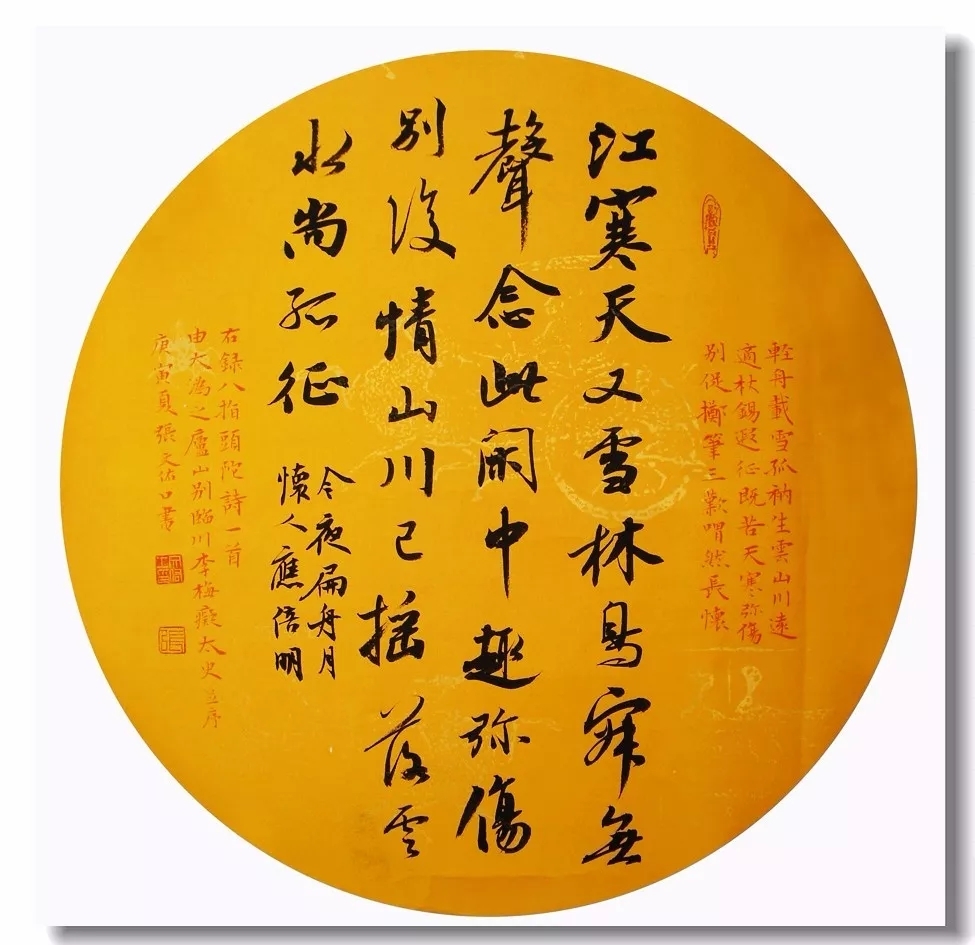 輊舟載雪孤衲生雲山川遠
適杖錫遐征既苦天寒弥傷
別促擲筆三歎喟然長懷
江寒天又雪林鳥寂無
聲念此閑中趣弥傷
別後情山川已摇落雲
水尚孤征
今夜扁舟月
懷人應倍明
右録八指頭陀詩一首
由大溈之廬山別臨川李梅癡太史並序
庚寅夏張文佑書
張